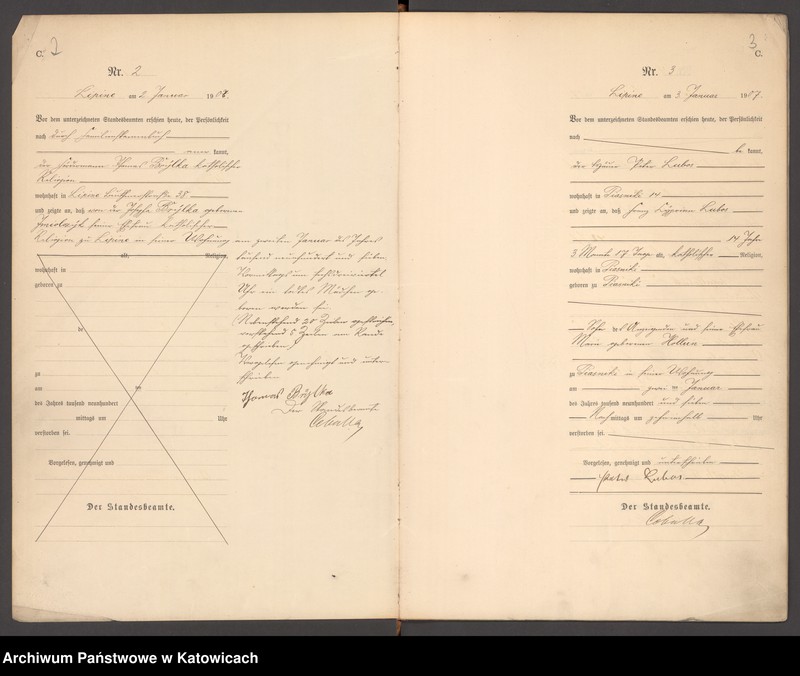 C. 2
Nr. 2
Lipine am 2 Januar 1907.
Vor dem unterzeichneten Standesbeamten erschien heute, der Persönlichkeit
nach durch Familienstammbuch
kannt,
der Thomas Bujlka katholischer
Religion
wohnhaft in Lipine 38
und zeigte an, daß von der Josefa Bujlka geborenen
seiner Ehefrau katholischer
Religion zu Lipine in seiner Wohnung
alt, Religion,
wohnhaft in
geboren zu
de
zu
am ten
des Jahres tausend neunhundert
mittags um Uhr
verstorben sei.
Vorgelesen, genehmigt und
Der Standesbeamte.
am zweiten Januar des Jahres
tausend neunhundert und sieben
Vormittags um
Uhr ein todtes Mädchen ge-
boren worden sei
(Nebenstehend 20 Zeilen gestrichen,
vorstehend 5 Zeilen am Rande
geschrieben)
Vorgelesen genehmigt und unter-
schrieben
Thomas Bujlka
Der Standesbeamte
Cebulla
3
C.
Nr. 3
Lipine am 3 Januar 1907.
Vor dem unterzeichneten Standesbeamten erschien heute, der Persönlichkeit
nach
be kannt,
der Häuer Peter Lubos
wohnhaft in Piasniki 14
und zeigte an, daß Lubos
14 Jahre
3 Monate 17 Tage alt, katholischer Religion,
wohnhaft in Piasniki
geboren zu Piasniki
Sohn des Anzeigenden und seiner Ehefrau
Marie geborenen
zu Piasniki in seiner Wohnung
am zwei ten Januar
des Jahres tausend neunhundert und sieben
Nach mittags um Uhr
verstorben sei.
Vorgelesen, genehmigt und unterschrieben
Peter Lubos
Der Standesbeamte.
Cebulla
Archiwum Państwowe w Katowicach